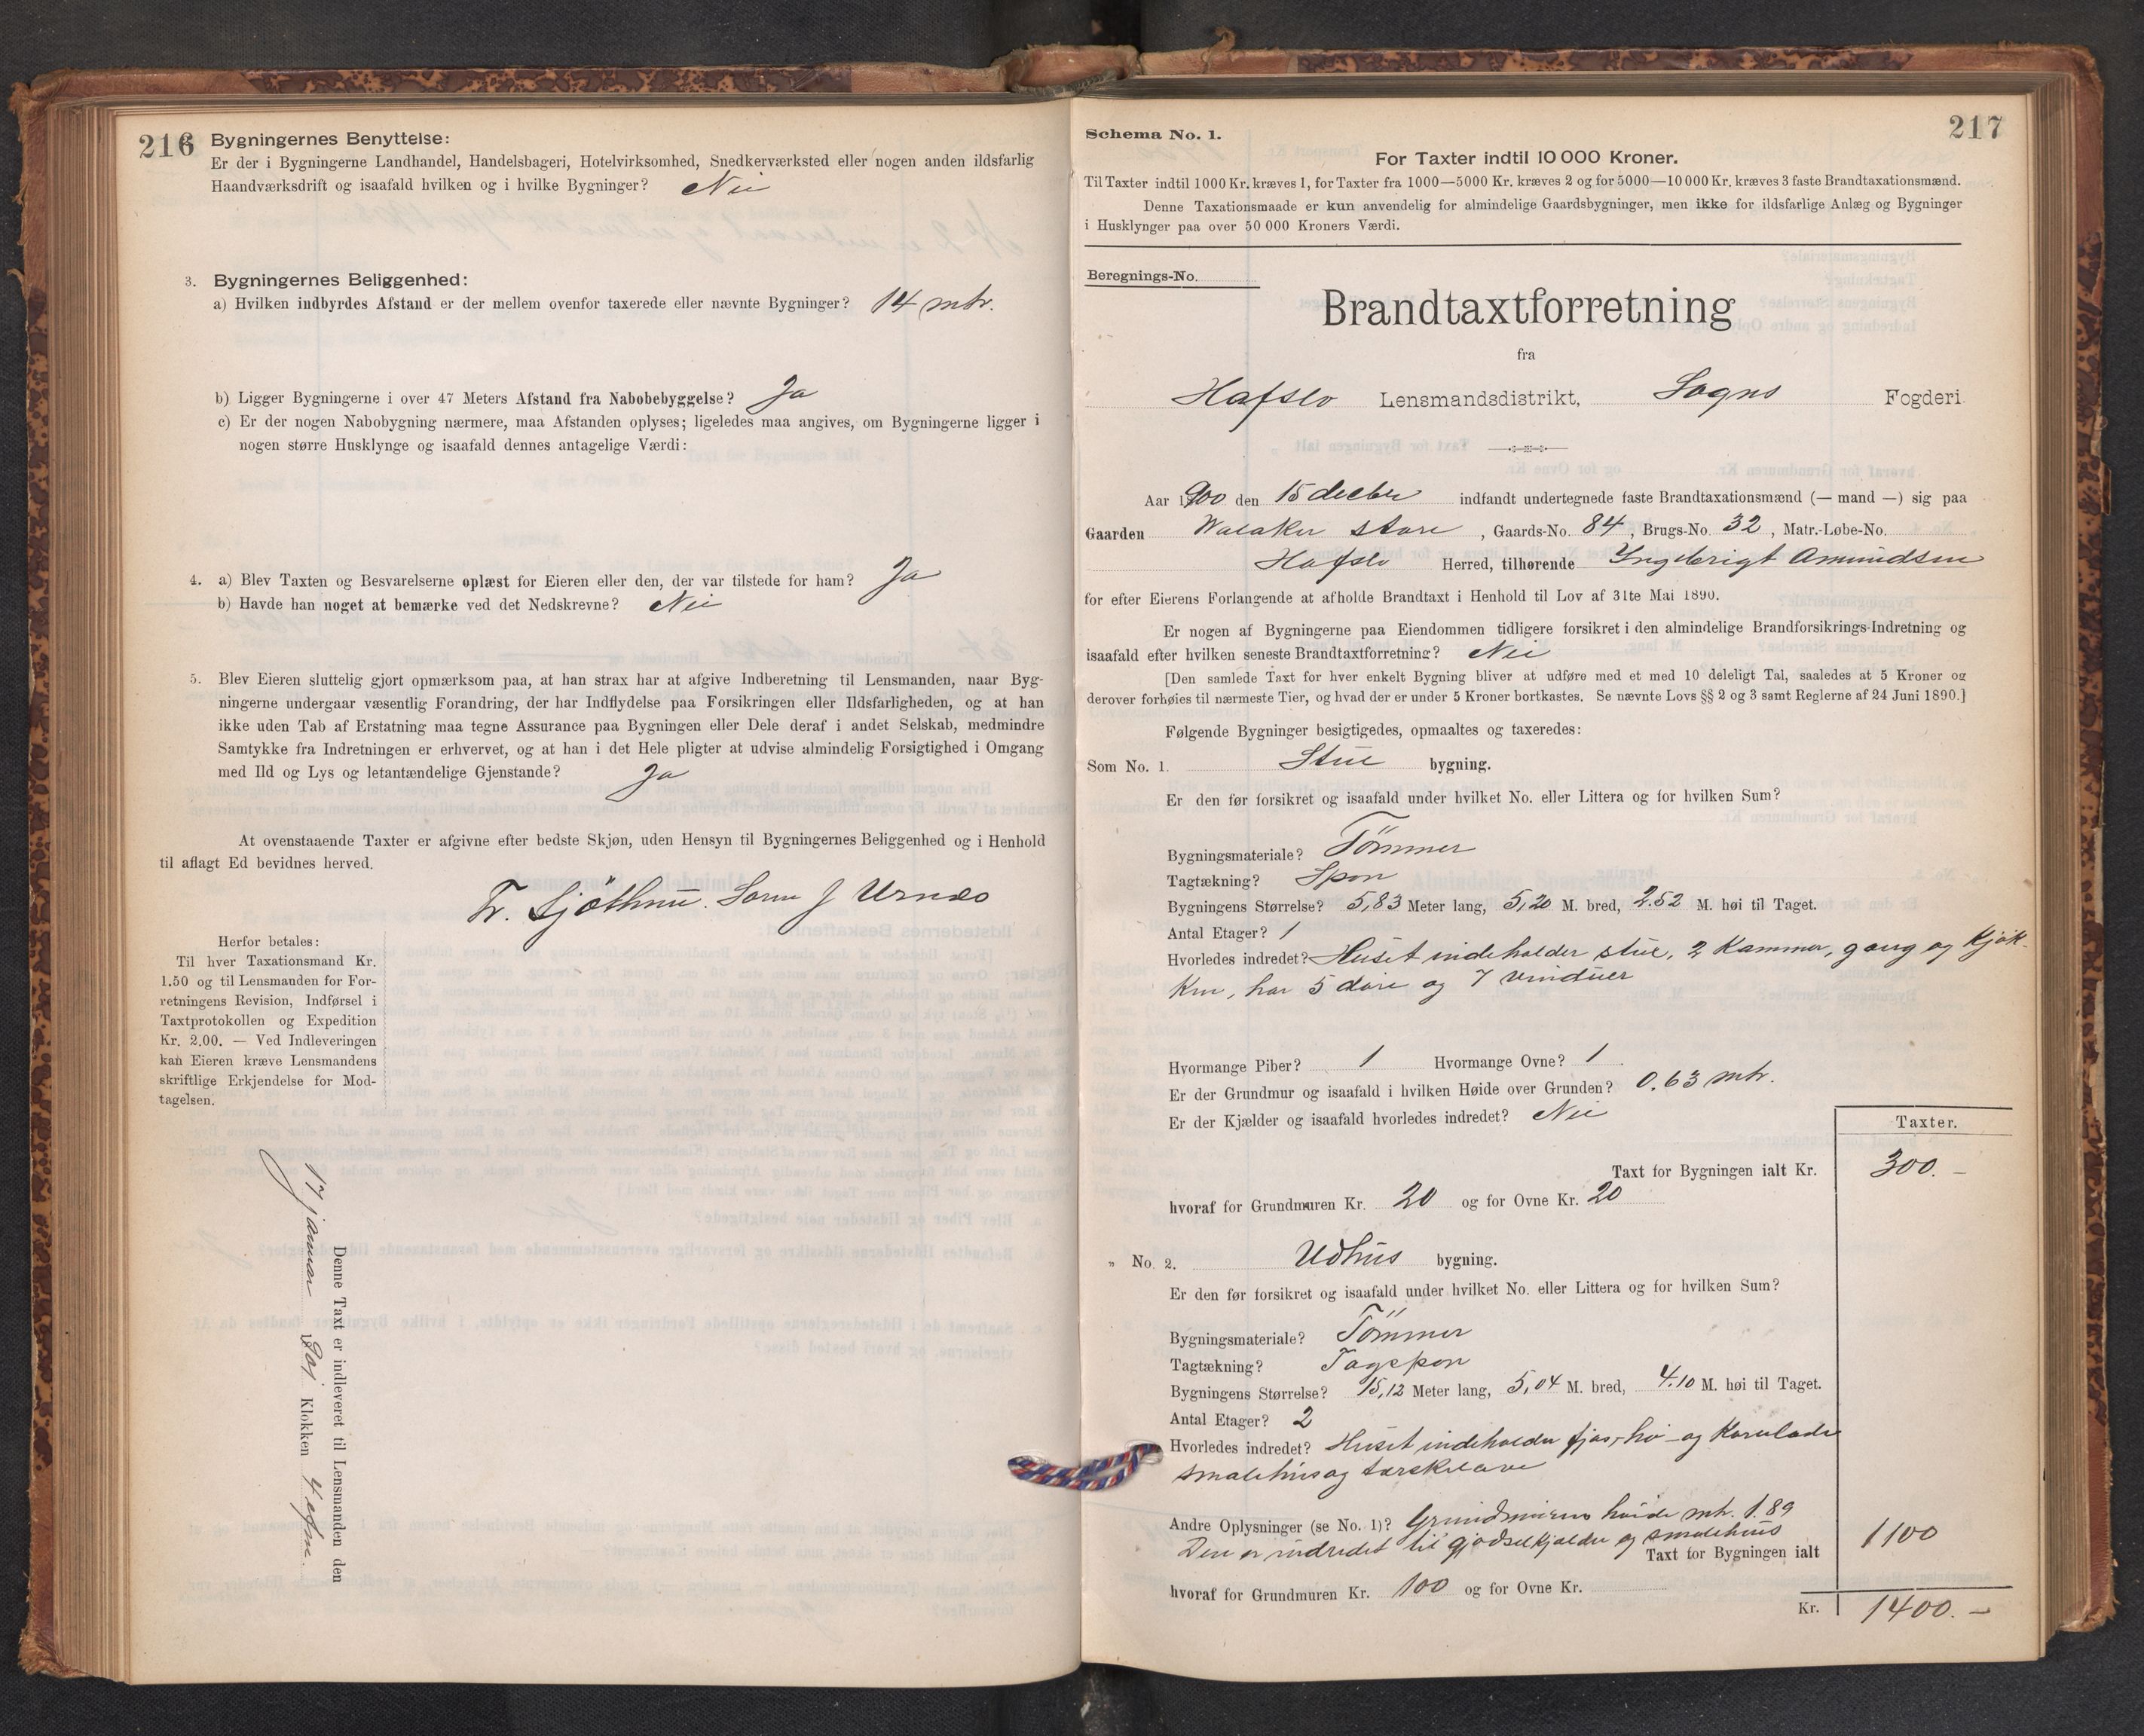 216
Bygningernes Benyttelse:
Er der i Bygningerne Landhandel, Handelsbageri, Hotelvirksomhed, Snedkerværksted eller nogen anden ildsfarlig
Haandværksdrift og isaafald hvilken og i hvilke Bygninger? Nei
3. Bygningernes Beliggenhed:
a) Hvilken indbyrdes Afstand er der mellem ovenfor taxerede eller nævnte Bygninger? 14 mtr.
b) Ligger Bygningerne i over 47 Meters Afstand fra Nabobebyggelse? Ja
c) Er der nogen Nabobygning nærmere, maa Afstanden oplyses; ligeledes maa angives, om Bygningerne ligger i
nogen større Husklynge og isaafald dennes antagelige Værdi:
4. a) Blev Taxten og Besvarelserne oplæst for Eieren eller den, der var tilstede for ham? Ja
b) Havde han noget at bemærke ved det Nedskrevne? Nei
5. Blev Eieren sluttelig gjort opmærksom paa, at han strax har at afgive Indberetning til Lensmanden, naar Byg-
ningerne undergaar væsentlig Forandring, der har Indflydelse paa Forsikringen eller Ildsfarligheden, og at han
ikke uden Tab af Erstatning maa tegne Assurance paa Bygningen eller Dele deraf i andet Selskab, medmindre
Samtykke fra Indretningen er erhvervet, og at han i det Hele pligter at udvise almindelig Forsigtighed i Omgang
med Ild og Lys og letantændelige Gjenstande? Ja
At ovenstaaende Taxter er afgivne efter bedste Skjøn, uden Hensyn til Bygningernes Beliggenhed og i Henhold
til aflagt Ed bevidnes herved.
J Urnæs
Herfor betales:
Til hver Taxationsmand Kr.
1.50 og til Lensmanden for For-
retningens Revision, Indførsel i
Taxtprotokollen og Expedition
Kr. 2.00. — Ved Indleveringen
kan Eieren kræve Lensmandens
skriftlige Erkjendelse for Mod-
tagelsen.
Denne Taxt er indleveret til Lensmanden den
17 januar 1901 Klokken 4
217
Schema No. 1.
For Taxter indtil 10 000 Kroner.
Til Taxter indtil 1000 Kr. kræves 1, for Taxter fra 1000—5000 Kr. kræves 2 og for 5000—10 000 Kr. kræves 3 faste Brandtaxationsmænd.
Denne Taxationsmaade er kun anvendelig for almindelige Gaardsbygninger, men ikke for ildsfarlige Anlæg og Bygninger
i Husklynger paa over 50 000 Kroners Værdi.
Beregnings-No.
Brandtaxtforretning
fra
Hafslo Lensmandsdistrikt, Sogns Fogderi
Aar 1900 den 15 decbr indfandt undertegnede faste Brandtaxationsmænd (— mand —) sig paa
Gaarden Walaker store , Gaards-No. 84, Brugs-No. 32, Matr.-Løbe-No.
Hafslo Herred, tilhørende Ingebrigt Amundsen
for efter Eierens Forlangende at afholde Brandtaxt i Henhold til Lov af 31te Mai 1890.
Er nogen af Bygningerne paa Eiendommen tidligere forsikret i den almindelige Brandforsikrings-Indretning og
isaafald efter hvilken seneste Brandtaxtforretning? Nei
[Den samlede Taxt for hver enkelt Bygning bliver at udføre med et med 10 deleligt Tal, saaledes at 5 Kroner og
derover forhøies til nærmeste Tier, og hvad der er under 5 Kroner bortkastes. Se nævnte Lovs §§ 2 og 3 samt Reglerne af 24 Juni 1890.]
Følgende Bygninger besigtigedes, opmaaltes og taxeredes:
Som No. 1. Stue bygning.
Er den før forsikret og isaafald under hvilket No. eller Littera og for hvilken Sum?
Bygningsmateriale? Tömmer
Tagtækning? Spon
Bygningens Størrelse? 5,83 Meter lang, 5,20 M. bred, 2.52 M. høi til Taget.
Antal Etager? 1
Hvorledes indredet? Huset indeholder stue, 2 Kammer, gang og Kjøk-
ken, har 5 døre og 7 vinduer
Hvormange Piber? 1 Hvormange Ovne? 1
Er der Grundmur og isaafald i hvilken Høide over Grunden? 0.63 mtr.
Er der Kjælder og isaafald hvorledes indredet? Nei
Taxter.
Taxt for Bygningen ialt Kr. 300. —
hvoraf for Grundmuren Kr. 20 og for Ovne Kr. 20
„ No. 2. Udhus bygning.
Er den før forsikret og isaafald under hvilket No. eller Littera og for hvilken Sum?
Bygningsmateriale? Tömmer
Tagtækning? Tagspon
Bygningens Størrelse? 15,12 Meter lang, 5,04 M. bred, 4.10 M. høi til Taget.
Antal Etager? 2
Hvorledes indredet? Huset indeholder fjøs, hø- og Kornlade
smalehus og
Andre Oplysninger (se No. 1)? Grundmurens høide mtr. 1.89
Den er indredet til gjødselkjælder og smalehus
Taxt for Bygningen ialt 1100
hvoraf for Grundmuren Kr. 100 og for Ovne Kr.
Kr. 1400. —